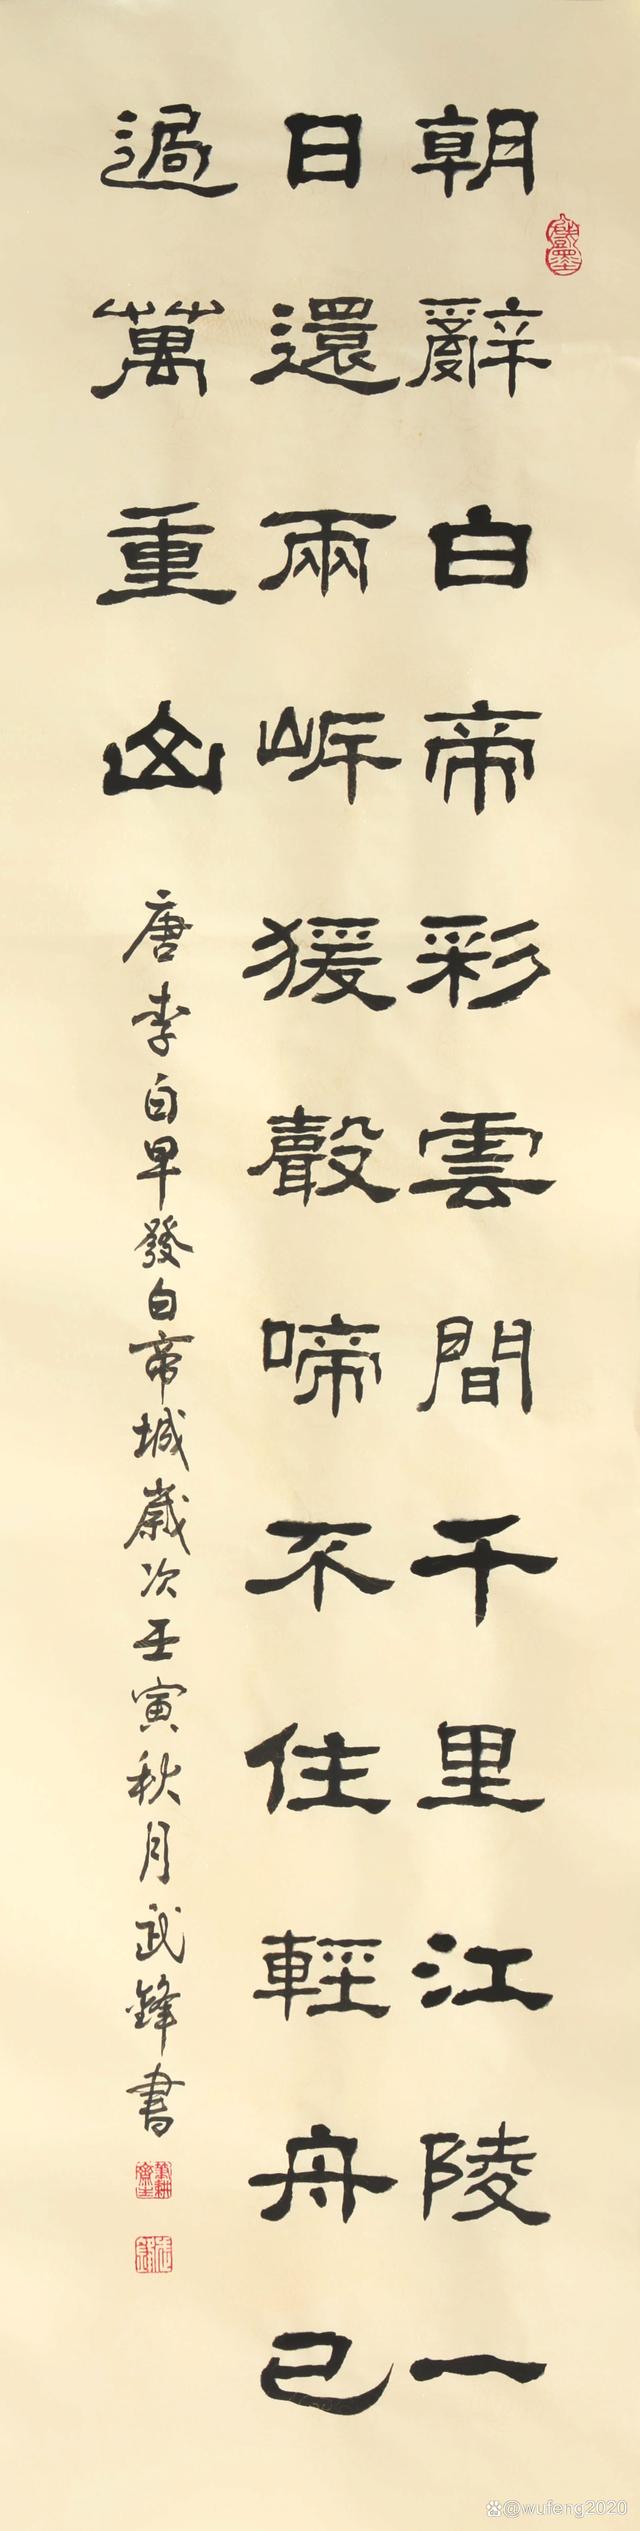 朝辭白帝彩雲間千里江陵一
日還兩岸猨聲啼不住輕舟已
過萬重山
唐李白早發白帝城歲次壬寅秋月武鋒書
@wufeng2020